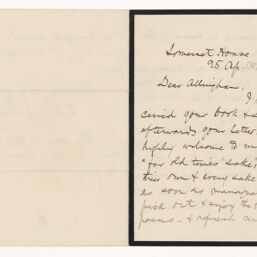 Somerset House
25 Ap.
Dear Allingham,
I
ceived your book &
afterwards your letter
highly welcome to m
"for old times' sake",
their own & even sake
as soon as
pick out & enjoy the
poems – & refresh